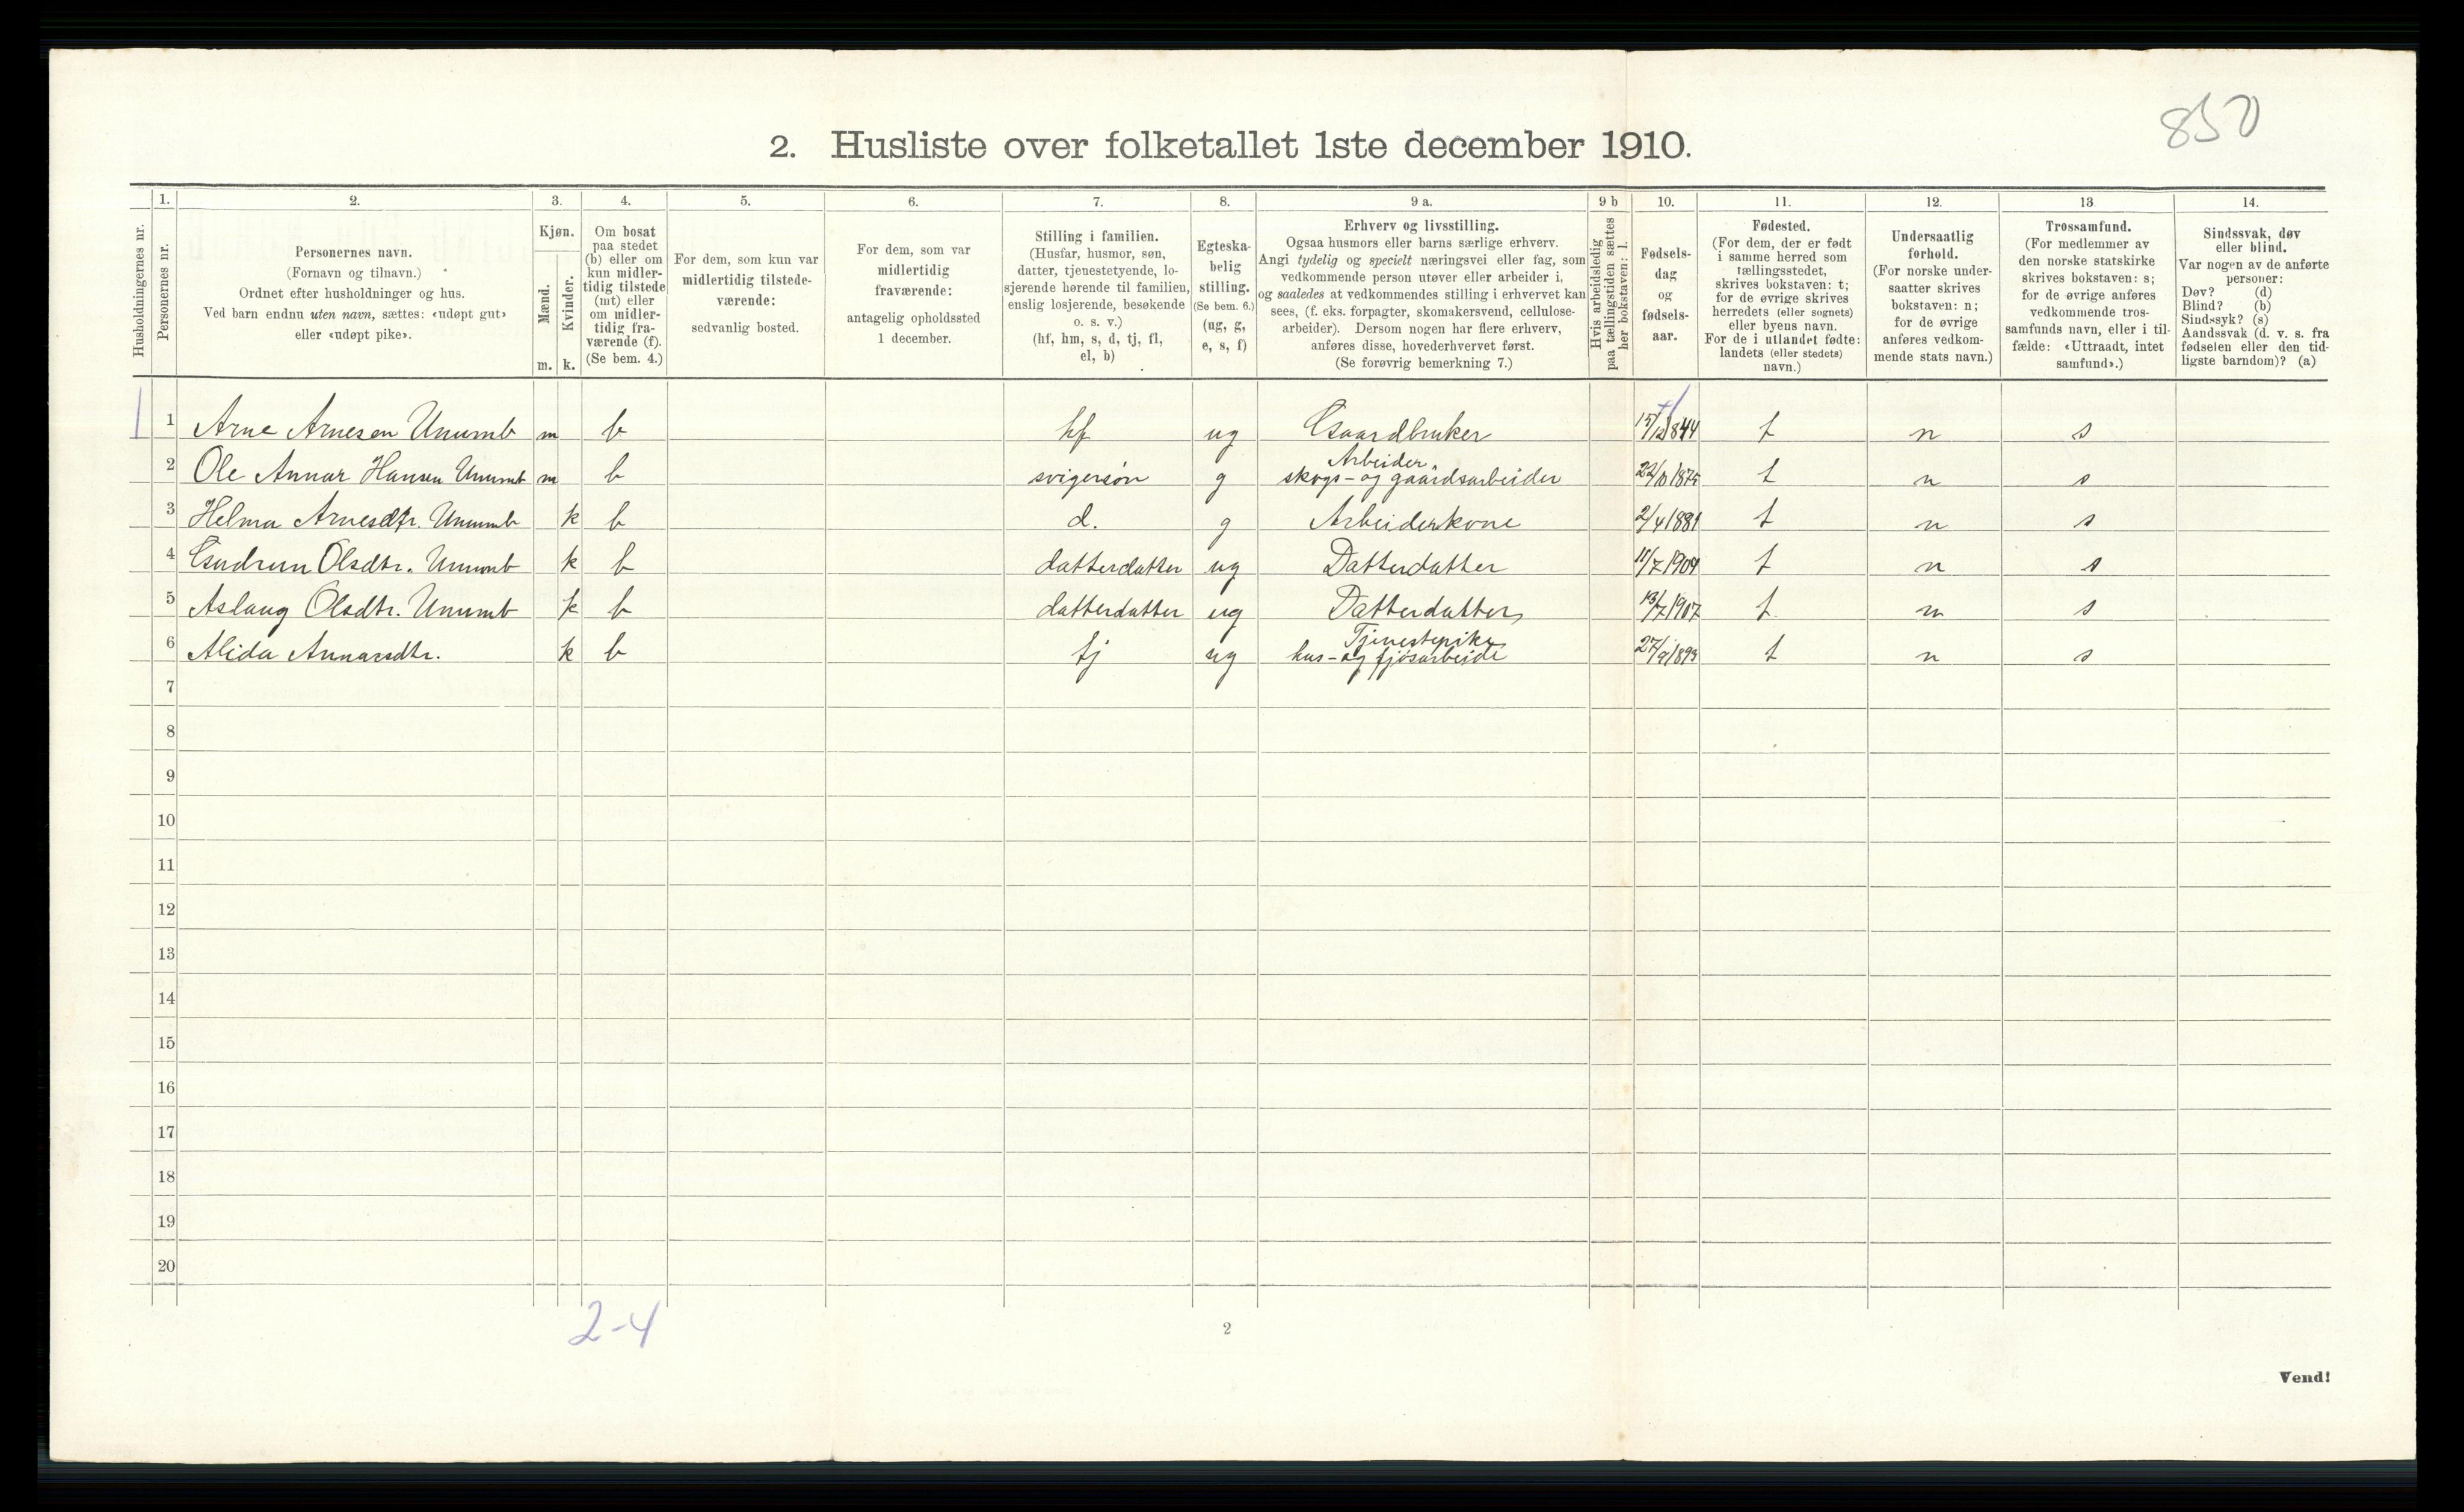 850
2. Husliste over folketallet 1ste december 1910.
Husholdningernes nr.
1.
Personernes nr.
2.
Personernes navn.
(Fornavn og tilnavn.)
Ordnet efter husholdninger og hus.
Ved barn endnu uten navn, sættes: «udøpt gut»
eller «udøpt pike».
3.
Kjøn.
Mænd.
Kvinder.
m. k.
4.
Om bosat
paa stedet
(b) eller om
kun midler-
tidig tilstede
(mt) eller
om midler-
tidig fra-
værende (f).
(Se bem. 4.)
5.
For dem, som kun var
midlertidig tilstede-
værende:
sedvanlig bosted.
6.
For dem, som var
midlertidig
fraværende:
antagelig opholdssted
1 december.
7.
Stilling i familien.
(Husfar, husmor, søn,
datter, tjenestetyende, lo-
sjerende hørende til familien,
enslig losjerende, besøkende
o. s. v.)
(hf, hm, s, d, tj, fl,
el, b)
8.
Egteska-
belig
stilling.
(Se bem. 6.)
(ug, g,
e, s, f)
9 a.
Erhverv og livsstilling.
Ogsaa husmors eller barns særlige erhverv.
Angi tydelig og specielt næringsvei eller fag, som
vedkommende person utøver eller arbeider i,
og saaledes at vedkommendes stilling i erhvervet kan
sees, (f. eks. forpagter, skomakersvend, cellulose-
arbeider). Dersom nogen har flere erhverv,
anføres disse, hovederhvervet først.
(Se forøvrig bemerkning 7.)
9 b
Hvis arbeidsledig
paa tællingstiden sættes
her bokstaven: l.
10.
Fødsels-
dag
og
fødsels-
aar.
11.
Fødested.
(For dem, der er født
i samme herred som
tællingsstedet,
skrives bokstaven: t;
for de øvrige skrives
herredets (eller sognets)
eller byens navn.
For de i utlandet fødte:
landets (eller stedets)
navn.)
12.
Undersaatlig
forhold.
(For norske under-
saatter skrives
bokstaven: n;
for de øvrige
anføres vedkom-
mende stats navn.)
13
Trossamfund.
(For medlemmer av
den norske statskirke
skrives bokstaven: s;
for de øvrige anføres
vedkommende tros-
samfunds navn, eller i til-
fælde: «Uttraadt, intet
samfund».)
14.
Sindssvak, døv
eller blind.
Var nogen av de anførte
personer:
Døv? (d)
Blind? (b)
Sindssyk? (s)
Aandssvak (d. v. s. fra
fødselen eller den tid-
ligste barndom)? (a)
1 1 Arne Arnesen Unumb m b hf ug Gaardbruker 1844 t n s
Arbeider,
2 Ole Annar Hansen Unumb m b svigersøn g skogs- og gaardsarbeider 22/10 1875 t n s
3 Helma Arnesdtr. Unumb k b d. g Arbeiderkone 2/4 1881 t n s
4 Gudrun Olsdtr. Unumb k b datterdatter ug Datterdatter 11/7 1904 t n s
5 Aslaug Olsdtr. Unumb k b datterdatter ug Datterdatter 13/7 1907 t n s
Tjenestepike
6 Alida Annarsdtr. k b tj ug hus- og fjøsarbeide 27/9 1893 t n s
7
8
9
10
11
12
13
14
15
16
17
18
19
20
2-4
2
Vend!